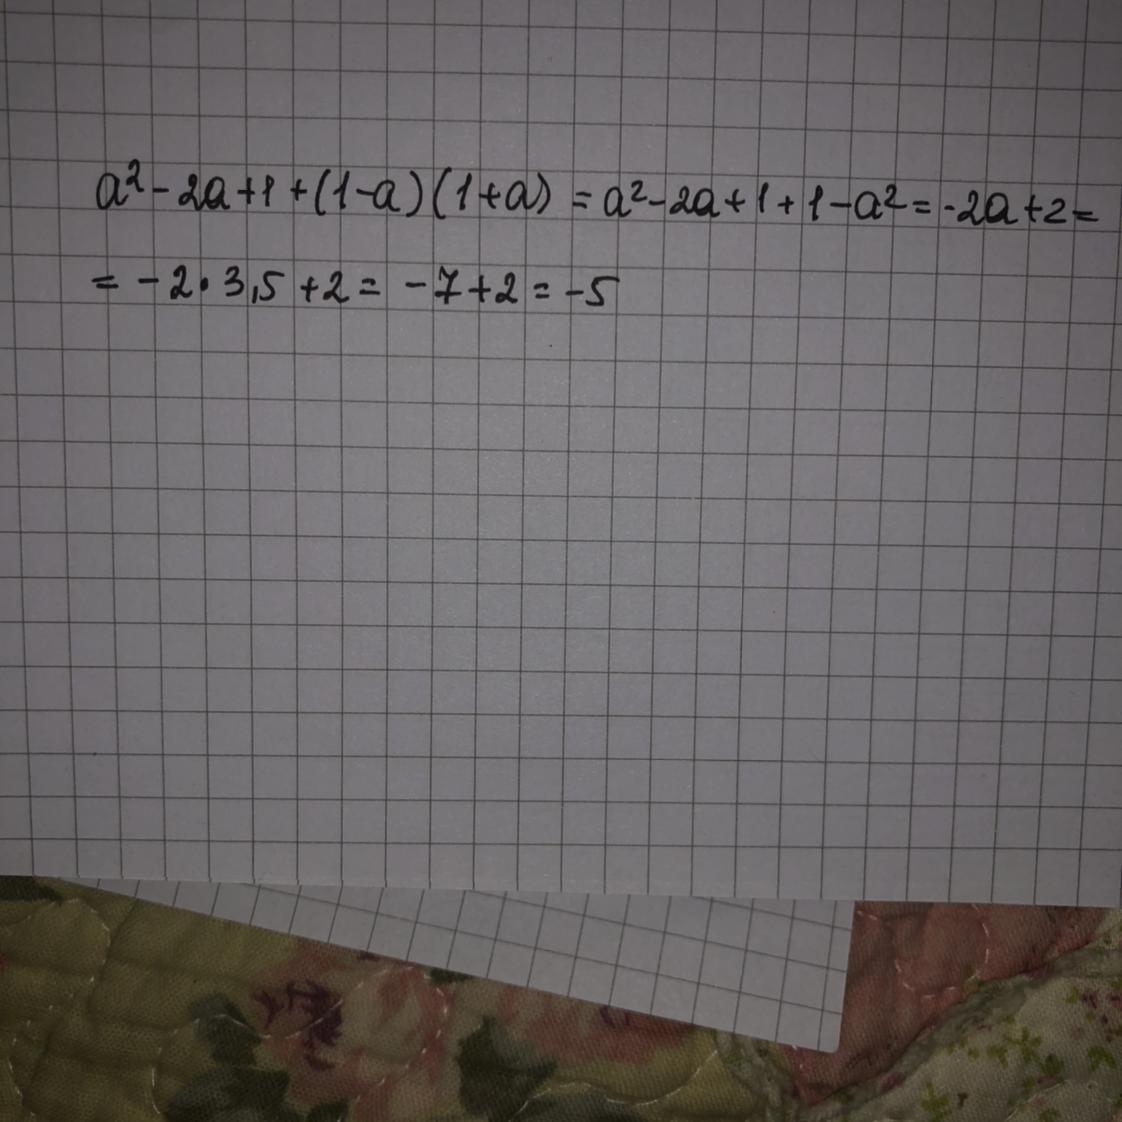 a² - 2a + 1 + (1-a)(1+a) = a² - 2a + 1 + 1 - a² = -2a + 2 =
= -2 • 3,5 + 2 = -7 + 2 = -5